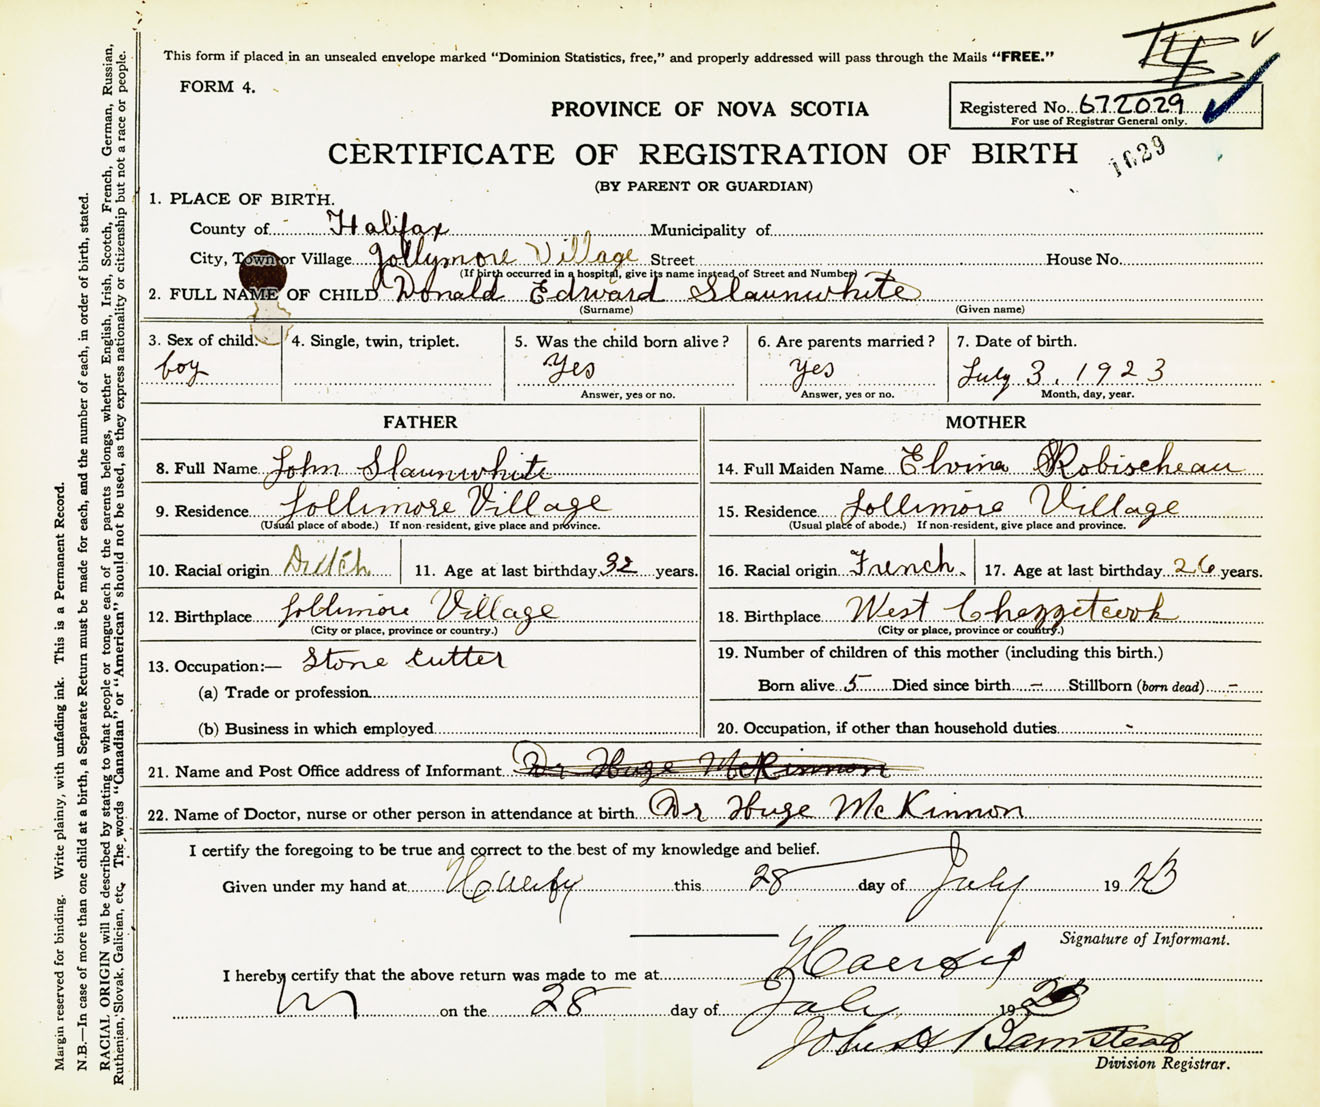 This form if placed in an unsealed envelope marked “Dominion Statistics, free,” and properly addressed will pass through the Mails “FREE.”
FORM 4.
PROVINCE OF NOVA SCOTIA
Registered No. 672029
For use of Registrar General only.
CERTIFICATE OF REGISTRATION OF BIRTH
1629
(BY PARENT OR GUARDIAN)
1. PLACE OF BIRTH.
County of Halifax Municipality of
City, Town or Village Jollymore Village Street House No.
(If birth occurred in a hospital, give its name instead of Street and Number)
2. FULL NAME OF CHILD Donald Edward Slaunwhite
(Surname) (Given name)
3. Sex of child. 4. Single, twin, triplet. 5. Was the child born alive? 6. Are parents married? 7. Date of birth.
boy Yes Yes July 3, 1923
Answer, yes or no. Answer, yes or no. Month, day, year.
FATHER MOTHER
8. Full Name John Slaunwhite 14. Full Maiden Name Elvina Robischeau
9. Residence Jollimore Village 15. Residence Jollimore Village
(Usual place of abode.) If non-resident, give place and province. (Usual place of abode.) If non-resident, give place and province.
10. Racial origin Dutch 11. Age at last birthday 32 years. 16. Racial origin French. 17. Age at last birthday 26 years.
12. Birthplace Jollimore Village 18. Birthplace West Chezzetcook
(City or place, province or country.) (City or place, province or country.)
13. Occupation:— Stone Cutter 19. Number of children of this mother (including this birth.)
(a) Trade or profession Born alive 5 Died since birth – Stillborn (born dead) –
(b) Business in which employed 20. Occupation, if other than household duties -
21. Name and Post Office address of Informant Dr Huge McKinnon
22. Name of Doctor, nurse or other person in attendance at birth Dr Huge McKinnon
I certify the foregoing to be true and correct to the best of my knowledge and belief.
Given under my hand at this 28 day of July 1923
Signature of Informant.
I hereby certify that the above return was made to me at
on the 28 day of July 1923
Division Registrar.
Margin reserved for binding. Write plainly, with unfading ink. This is a Permanent Record.
N.B.—In case of more than one child at a birth, a Separate Return must be made for each, and the number of each, in order of birth, stated.
RACIAL ORIGIN will be described by stating to what people or tongue each of the parents belongs, whether English, Irish, Scotch, French, German, Russian,
Ruthenian, Slovak, Galician, etc. The words “Canadian” or “American” should not be used, as they express nationality or citizenship but not a race or people.